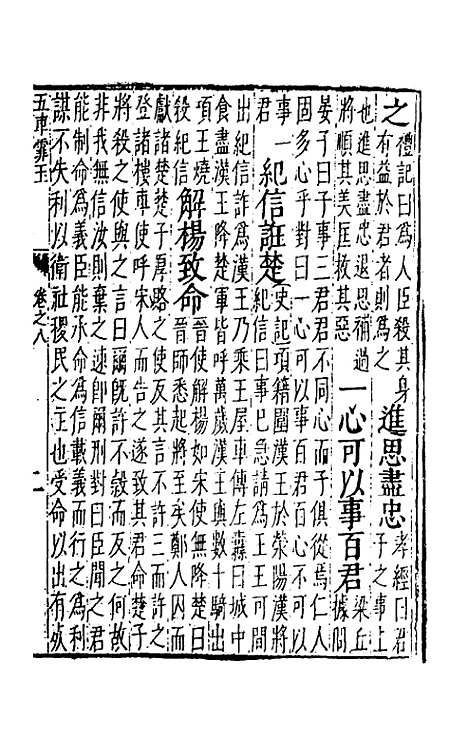 之
禮記曰為人臣殺其身
有益於君者則為之
進思盡忠
孝經曰君
子之事上
也進思盡忠退思補過
將順其美匡救其惡
一心可以事百君
梁丘
據問
晏子曰子事三君君不同心而子俱從焉仁人
固多心乎對曰一心可以事百君百心不可以
事一
君
紀信誑楚
史記項籍圍漢王於滎陽漢將
紀信曰事已急請為王王可間
出紀信詐為漢王乃乘王屋車傅左纛曰城中
食盡漢王降楚楚軍皆呼萬歲漢王與數十騎出
項王燒
殺紀信
解楊致命
晉使解楊如宋使無降楚曰
晉師悉起將至矣鄭人因而
獻諸楚楚子厚賂之使反其言不許三而許之
登諸樓車使呼宋人而告之遂致其君命楚子
將殺之使與之言曰爾既許不穀而反之何故
非我無信汝則棄之速即爾刑對曰臣聞之君
能制命為義臣能承命為信載義而行之為利
謀不失利以衛社稷民之主也受命以出有死
五車霏玉
卷之八
二